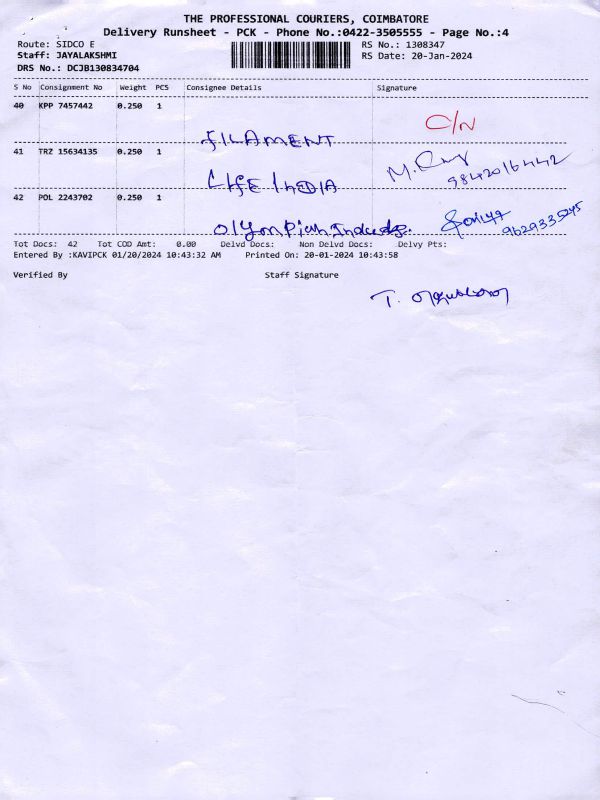 THE PROFESSIONAL COURIERS, COIMBATORE
Delivery Runsheet - PCK - Phone No.:0422-3505555 - Page No.:4
Route: SIDCO E RS No.: 1308347
Staff: JAYALAKSHMI RS Date: 20-Jan-2024
DRS No.: DCJB130834704
S No Consignment No Weight PCS Consignee Details Signature
40 KPP 7457442 0.250 1
FILAMENT C/N
41 TRZ 15634135 0.250 1
LIFE INDIA M. 9842016442
42 POL 2243702 0.250 1
9629335245
Tot Docs: 42 Tot COD Amt: 0.00 Delvd Docs: Non Delvd Docs: Delvy Pts:
Entered By :KAVIPCK 01/20/2024 10:43:32 AM Printed On: 20-01-2024 10:43:58
Verified By Staff Signature
T.